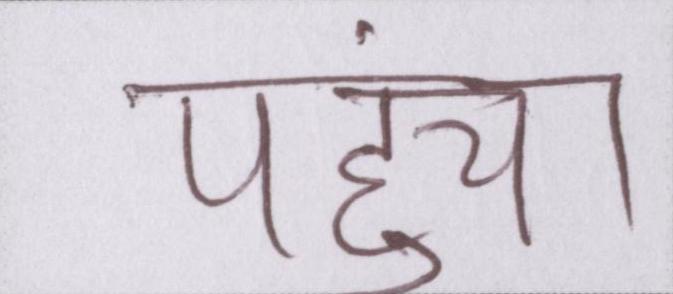 पहुंचा